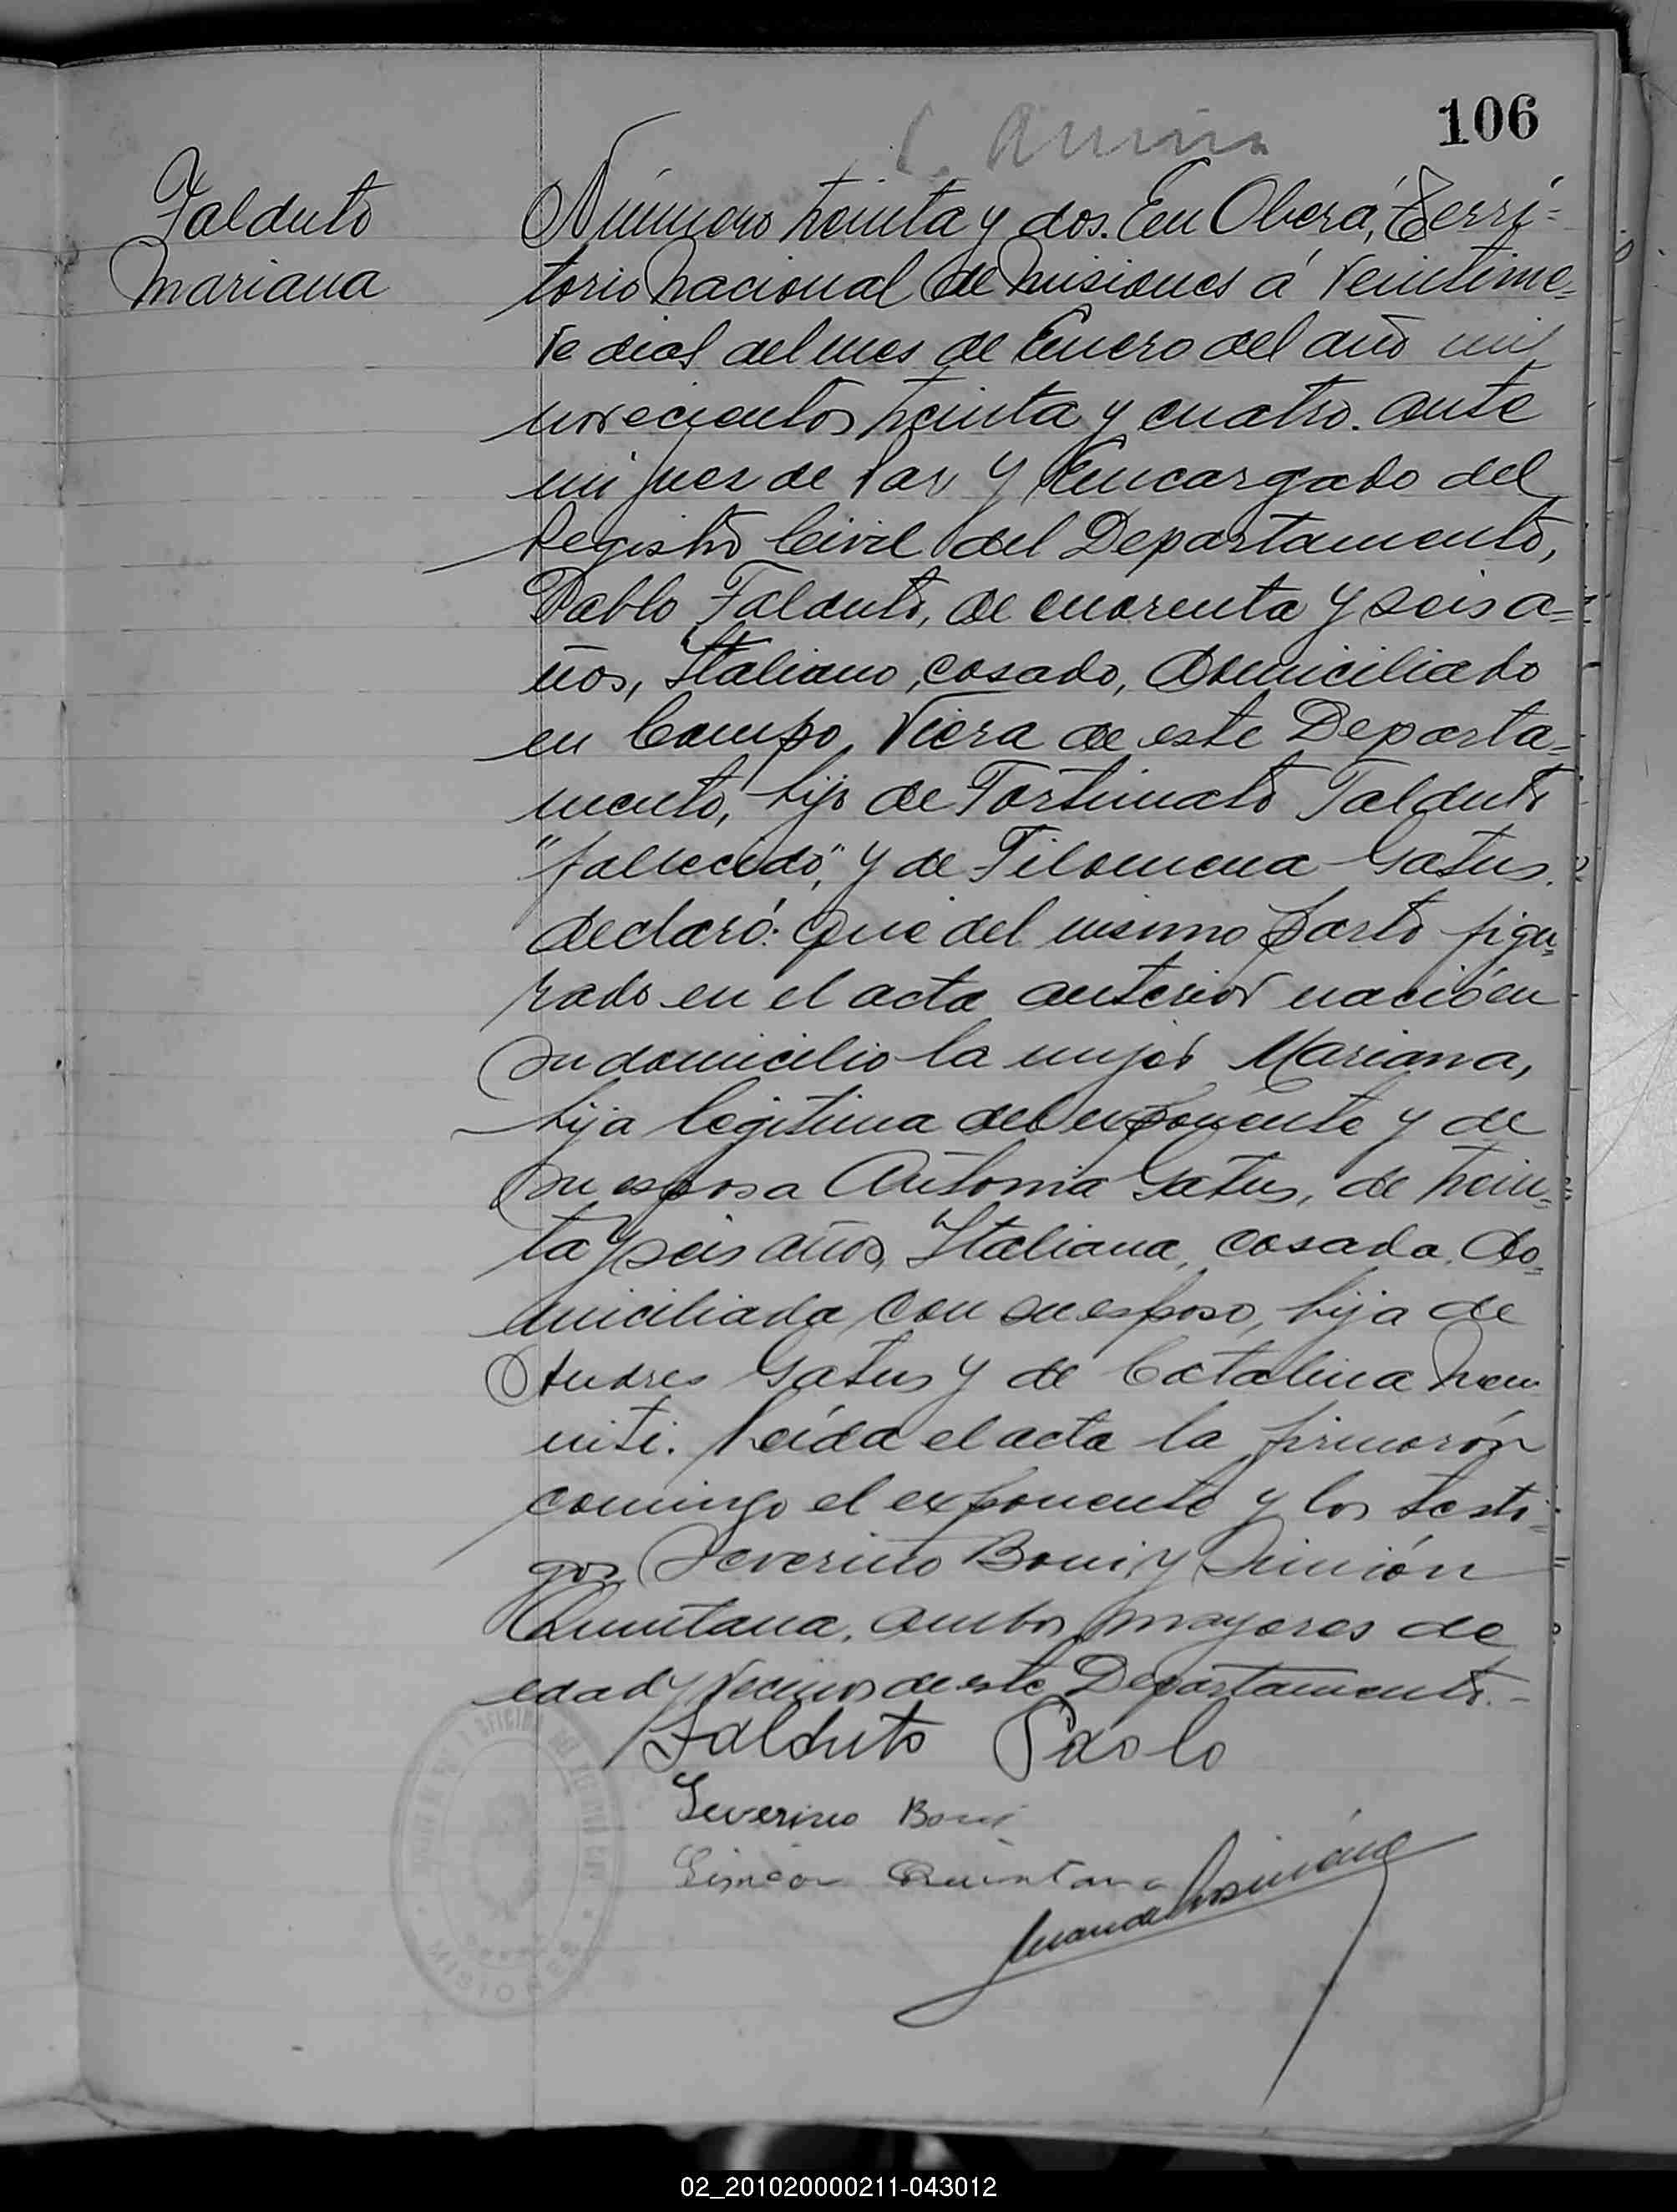 106
Falduto
Mariana
Número treinta y dos. En Oberá, Terri=
torio Nacional de Misiones á veintinue=
ve dias del mes de Enero del año mil
novecientos treinta y cuatro. ante
mi Juez de Paz y Encargado del
Registro Civil del Departamento,
Pablo Falduto, de cuarenta y seis a=
ños, Italiano, casado, domiciliado
en Campo Viera de este Departa=
mento, hijo de Fortunato Falduto
"fallecido", y de Filomena Gatus.
declaró: Que del mismo parto figu=
rado en el acta anterior nació en
su domicilio la mujer Mariana,
hija legitima del exponente y de
su esposa Antonia Gatus, de trein=
ta y seis años, Italiana, casada, do=
miciliada con su esposo, hija de
Andres Gatus y de Catalina
Leída el acta la firmarón
conmigo el exponente y los testi=
gos Severino Boni y Simión
Quintana, ambos mayores de
edad y vecinos de este Departamento.-
Falduto Paolo
Severino Boni
Simeon Quintana
MISIONES
02_201020000211-043012